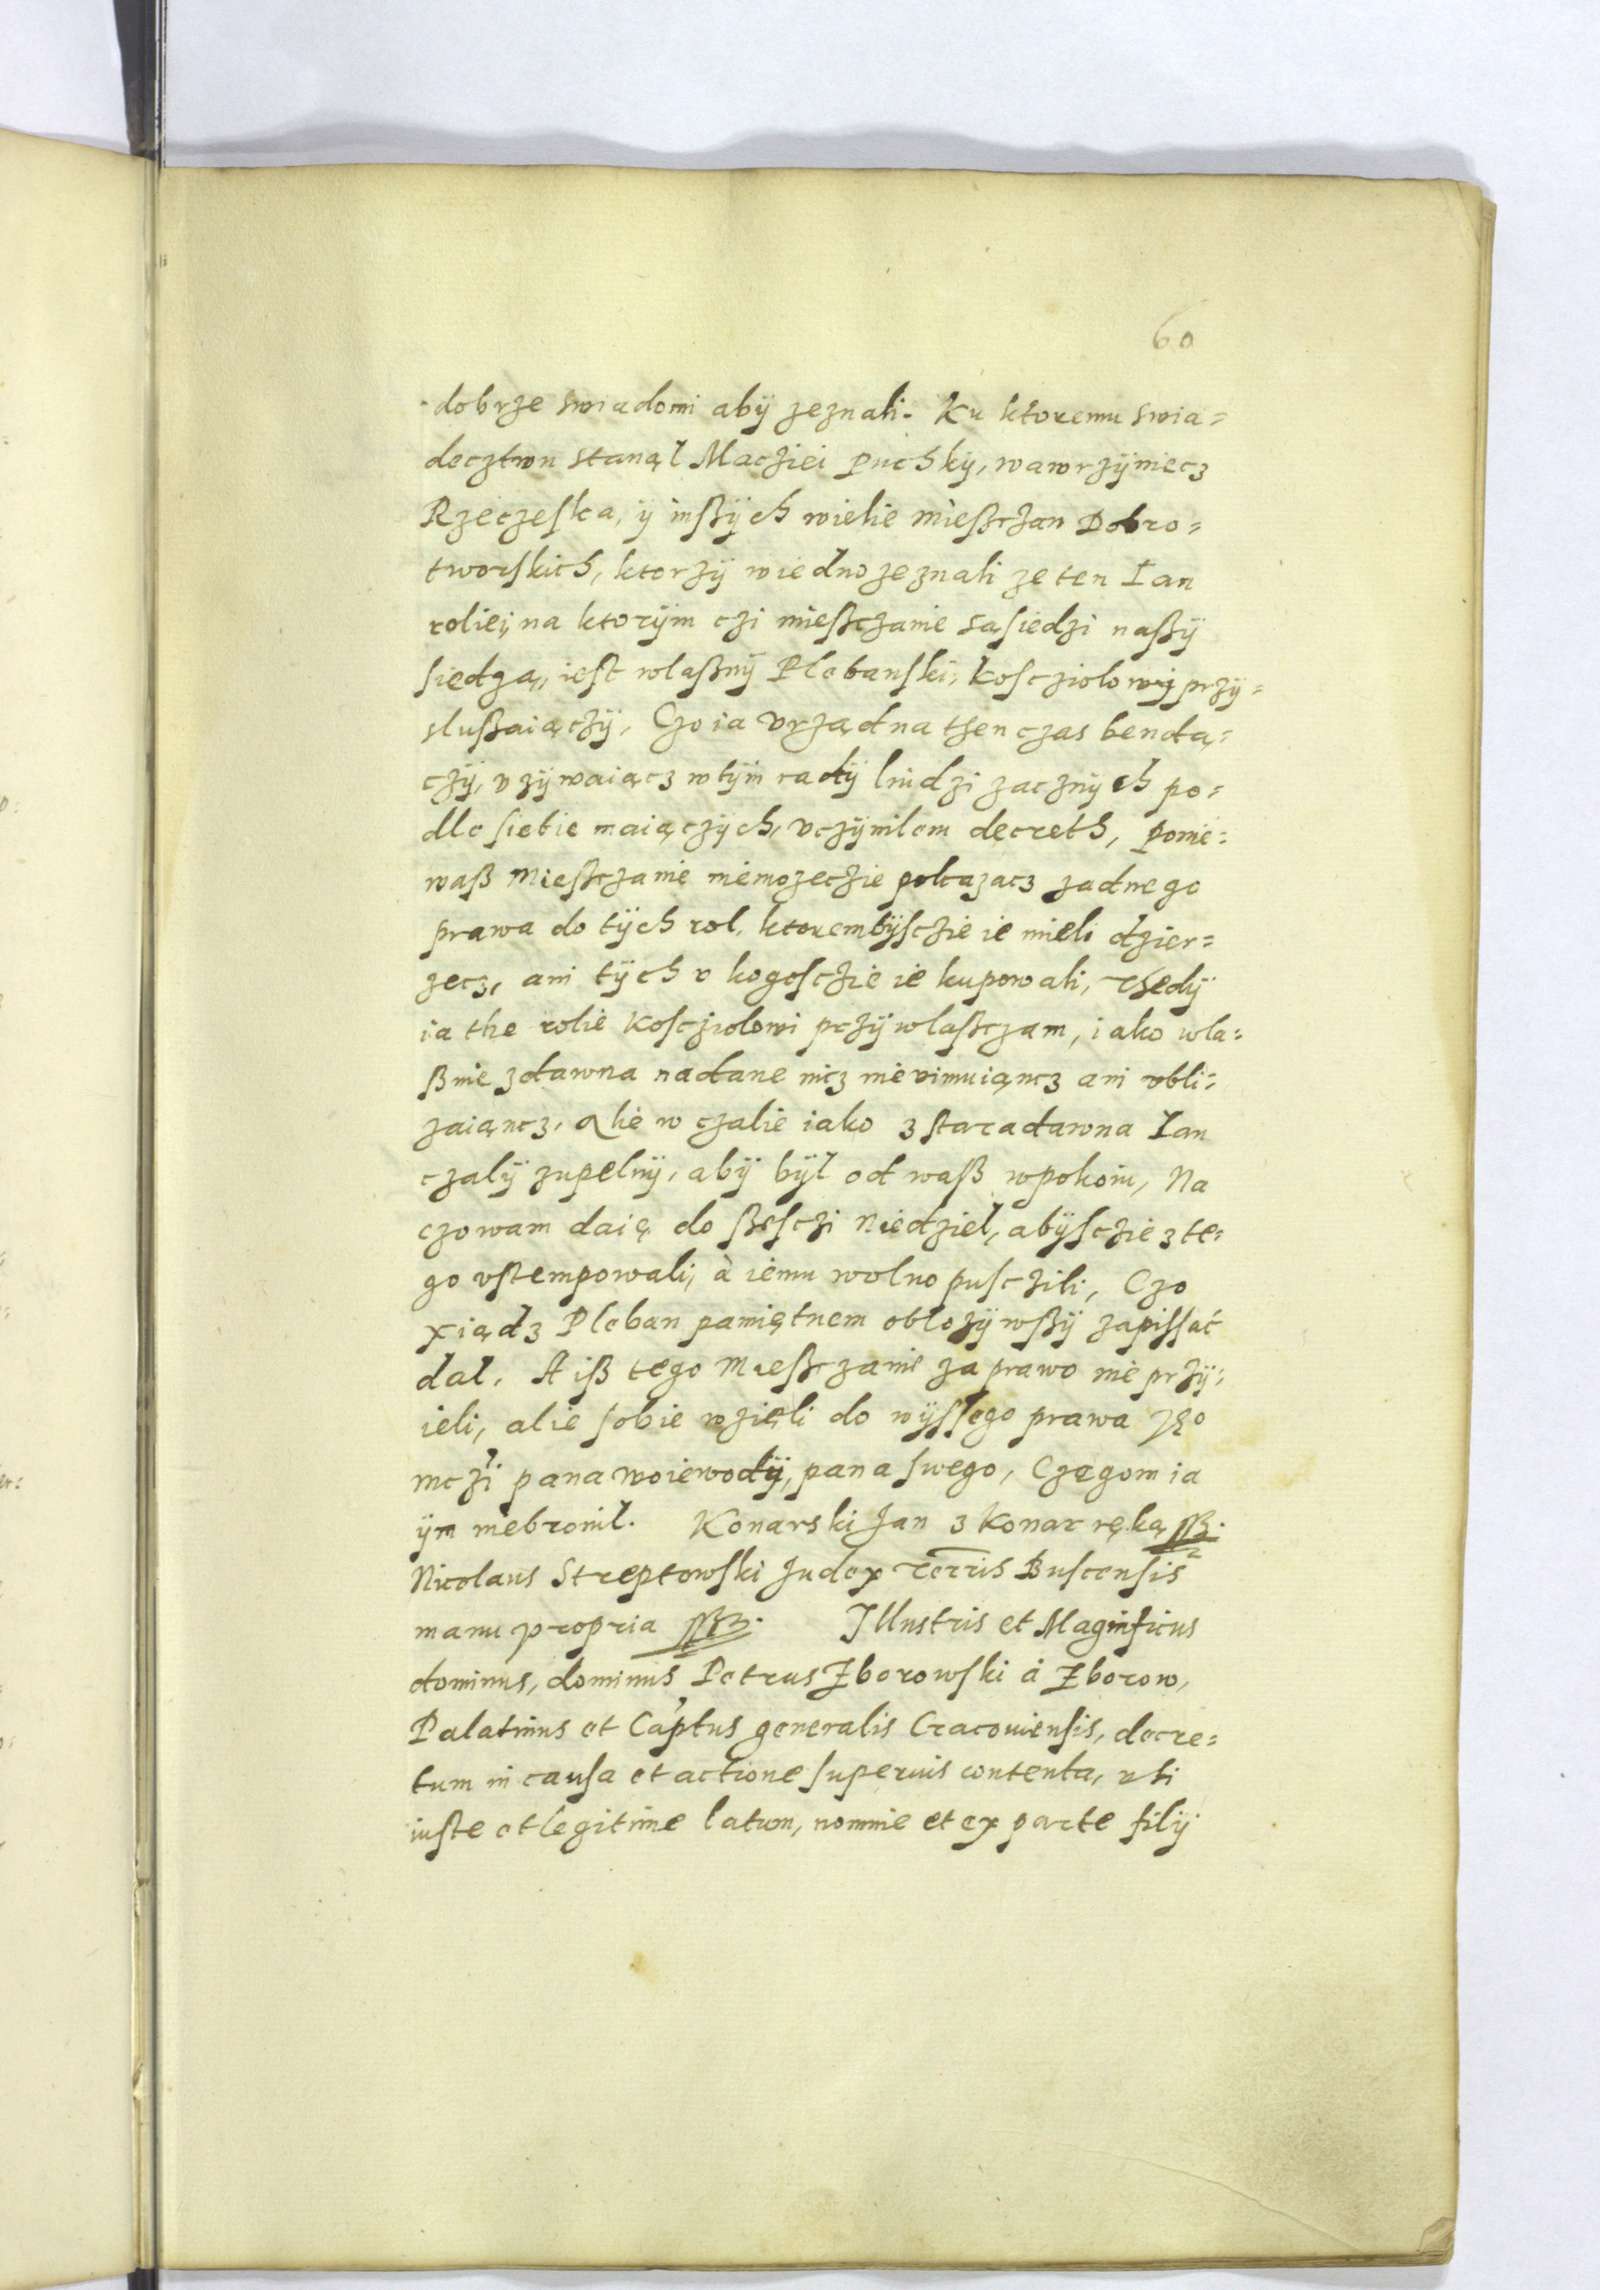 60
dobrze swiadomi abÿ zeznali. Ku ktoremu swia=
decztwu stanął Macziei Puchskÿ, wawrzÿniecz
Rzeczeska, ÿ inßÿch wielie mießczan Dobro=
tworskich, ktorzÿ wiedno zeznali ze ten Ian
roliei, na ktorÿm czi mießczanie sąsiedzi naßÿ
siedzą, iest wlaßnÿ Plebanski, kosczio­lowÿ przÿ=
slußaiączÿ, Czo ia vrząd na then czas bendą=
czÿ, vzÿwaiącz wtÿm radÿ liudzi zacznÿch po=
dle siebie maiączÿch, vczÿnilem decreth, ponie=
waß Mießczanie niemozeczie pokazacz zadnego
prawa do tÿch rol, ktorembÿsczie ie mieli dzier=
zecz, ani tÿch v kogosczie ie kupowali, Thedÿ
ia the rolie Kosciolowi przÿwlaßczam, iako wla=
ßnie zdawna nadane nicz nievimuiąncz ani vbli=
zaiąncz, Alie w czalie iako z staradawna Ian
czalÿ zupelnÿ, abÿ bÿl od waß wpokoiu, Na
czo wam daię do ßesczi Niedziel, abÿsczie z te=
go vstempowali, à iemu wolno pusczili, Czo
xiądz Pleban pamiętnem oblozÿwßÿ zapissać
dal. A iß tego Mießczanie za prawo nie przÿ=
ieli, alie sobie wzięli do wÿssego prawa Jeo
mczi pana woiewodÿ, pana swego, Czegom ia
ÿm niebronil. Konarski Jan z Konar ręką ssz.
Nicolaus Streptowski Judex Terris Buscensis
manu propria ssz. Jllustris et Magnificus
dominus, dominus Petrus Zborowski à Zborow,
Palatinus et Cap'tus generalis Cracouiensis, decre=
tum in causa et actione superius contenta, vti
iuste et legitime latum, nomine et ex parte filÿ